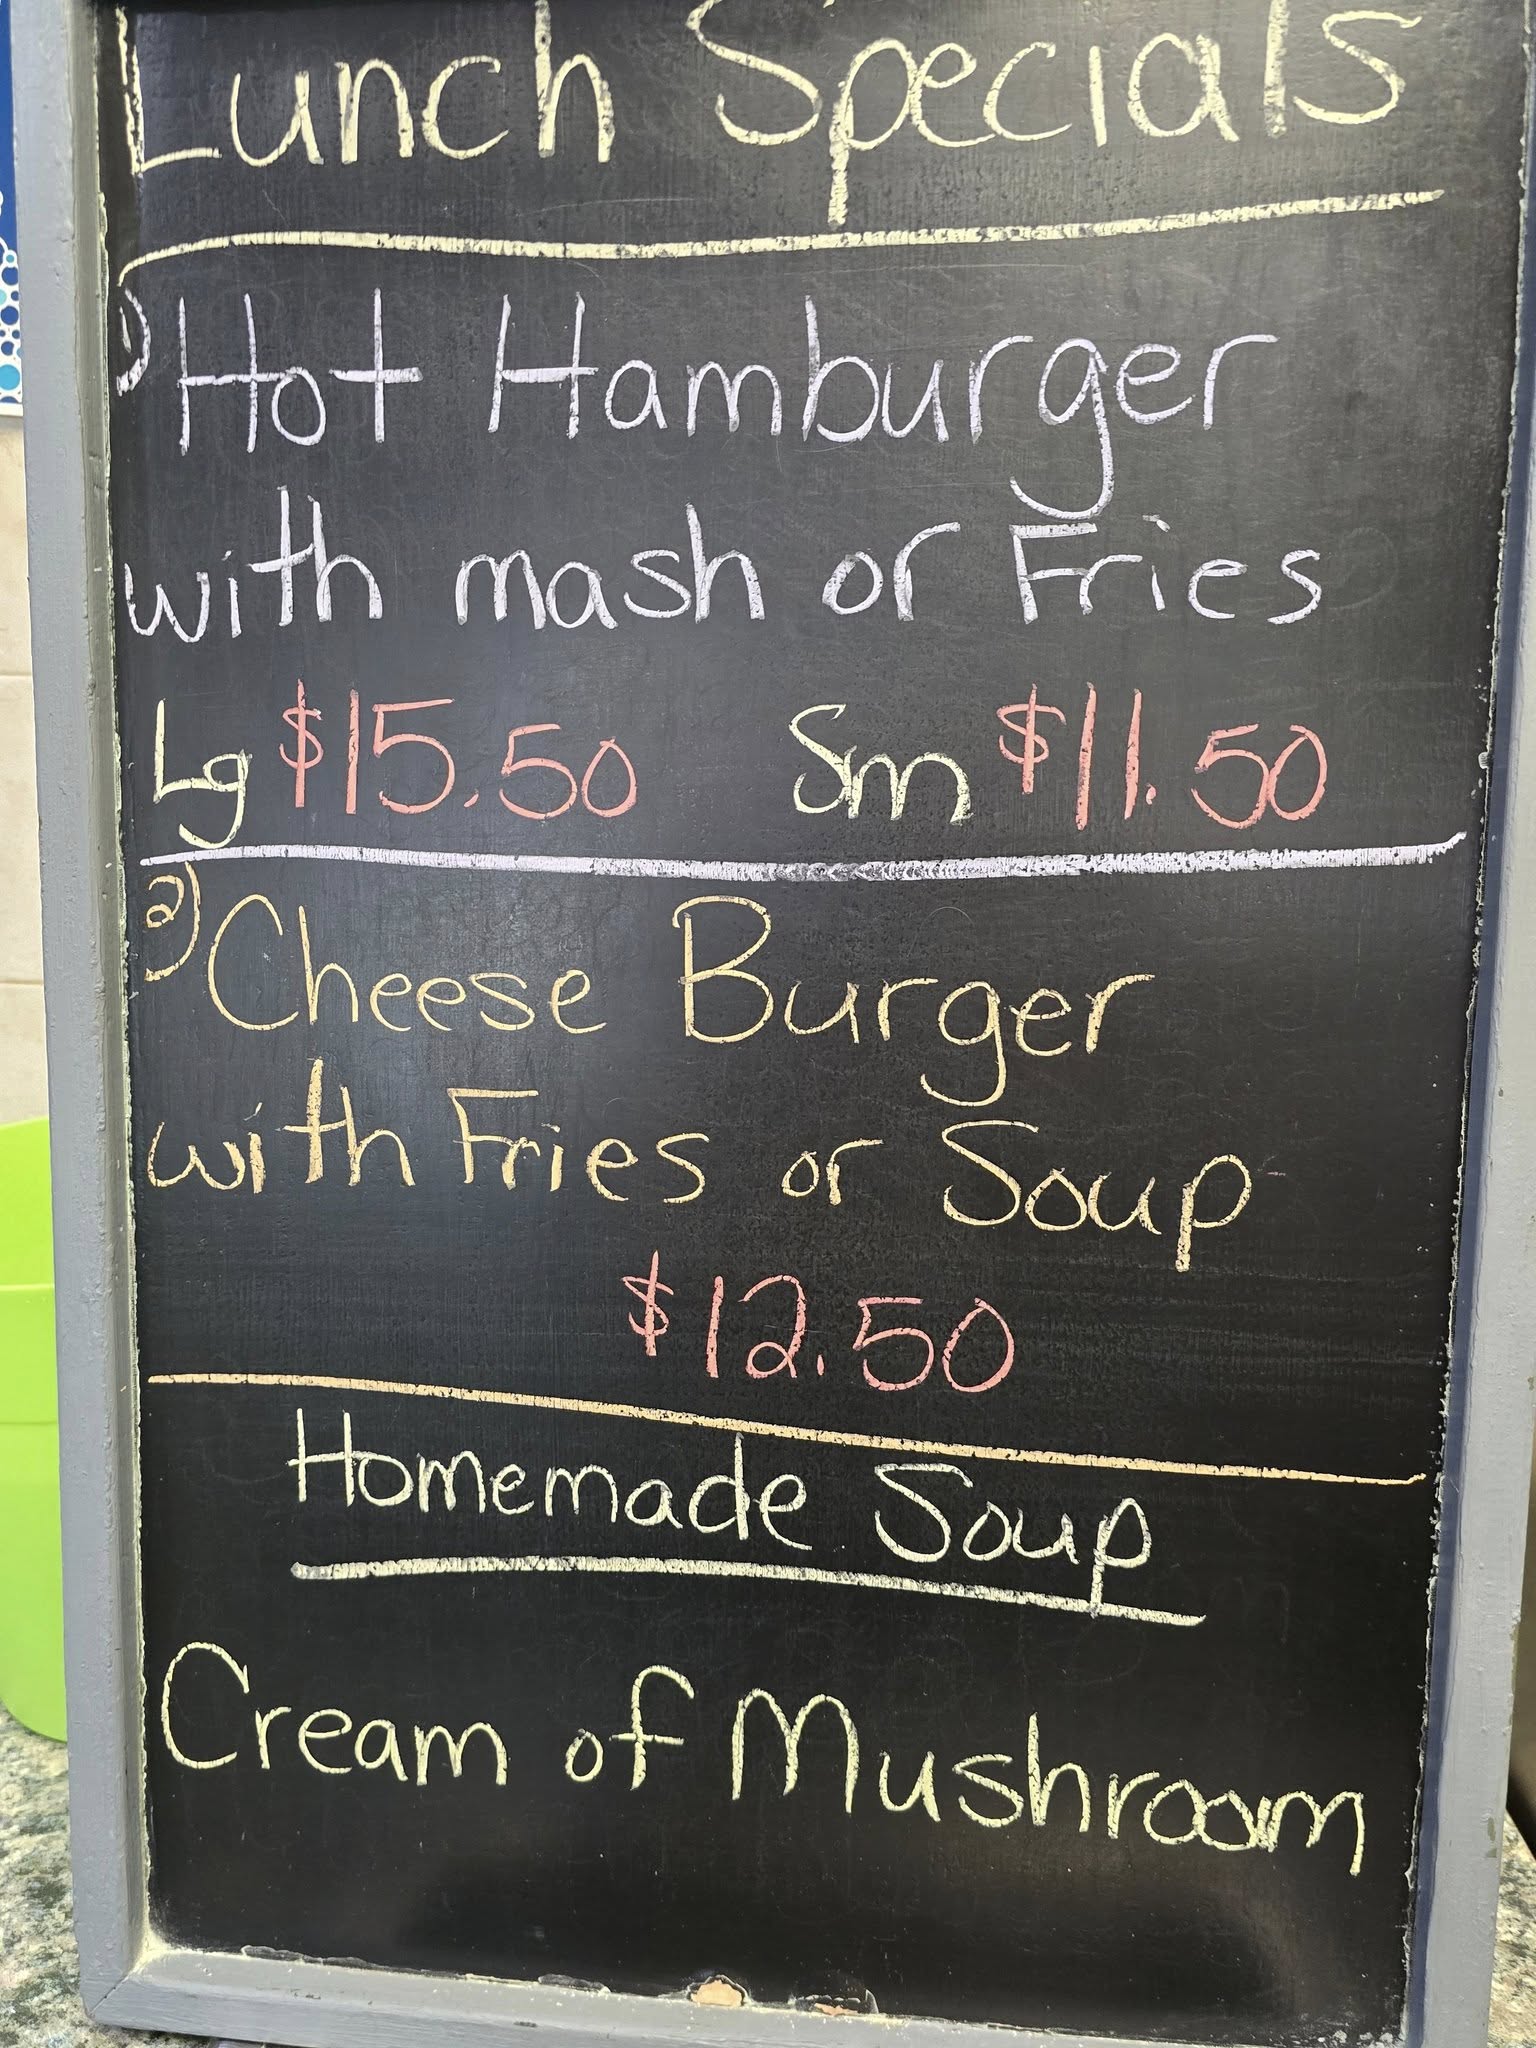 Lunch Specials
1) Hot Hamburger
with mash or Fries
Lg $15.50 Sm $11.50
2) Cheese Burger
with Fries or Soup
$12.50
Homemade Soup
Cream of Mushroom